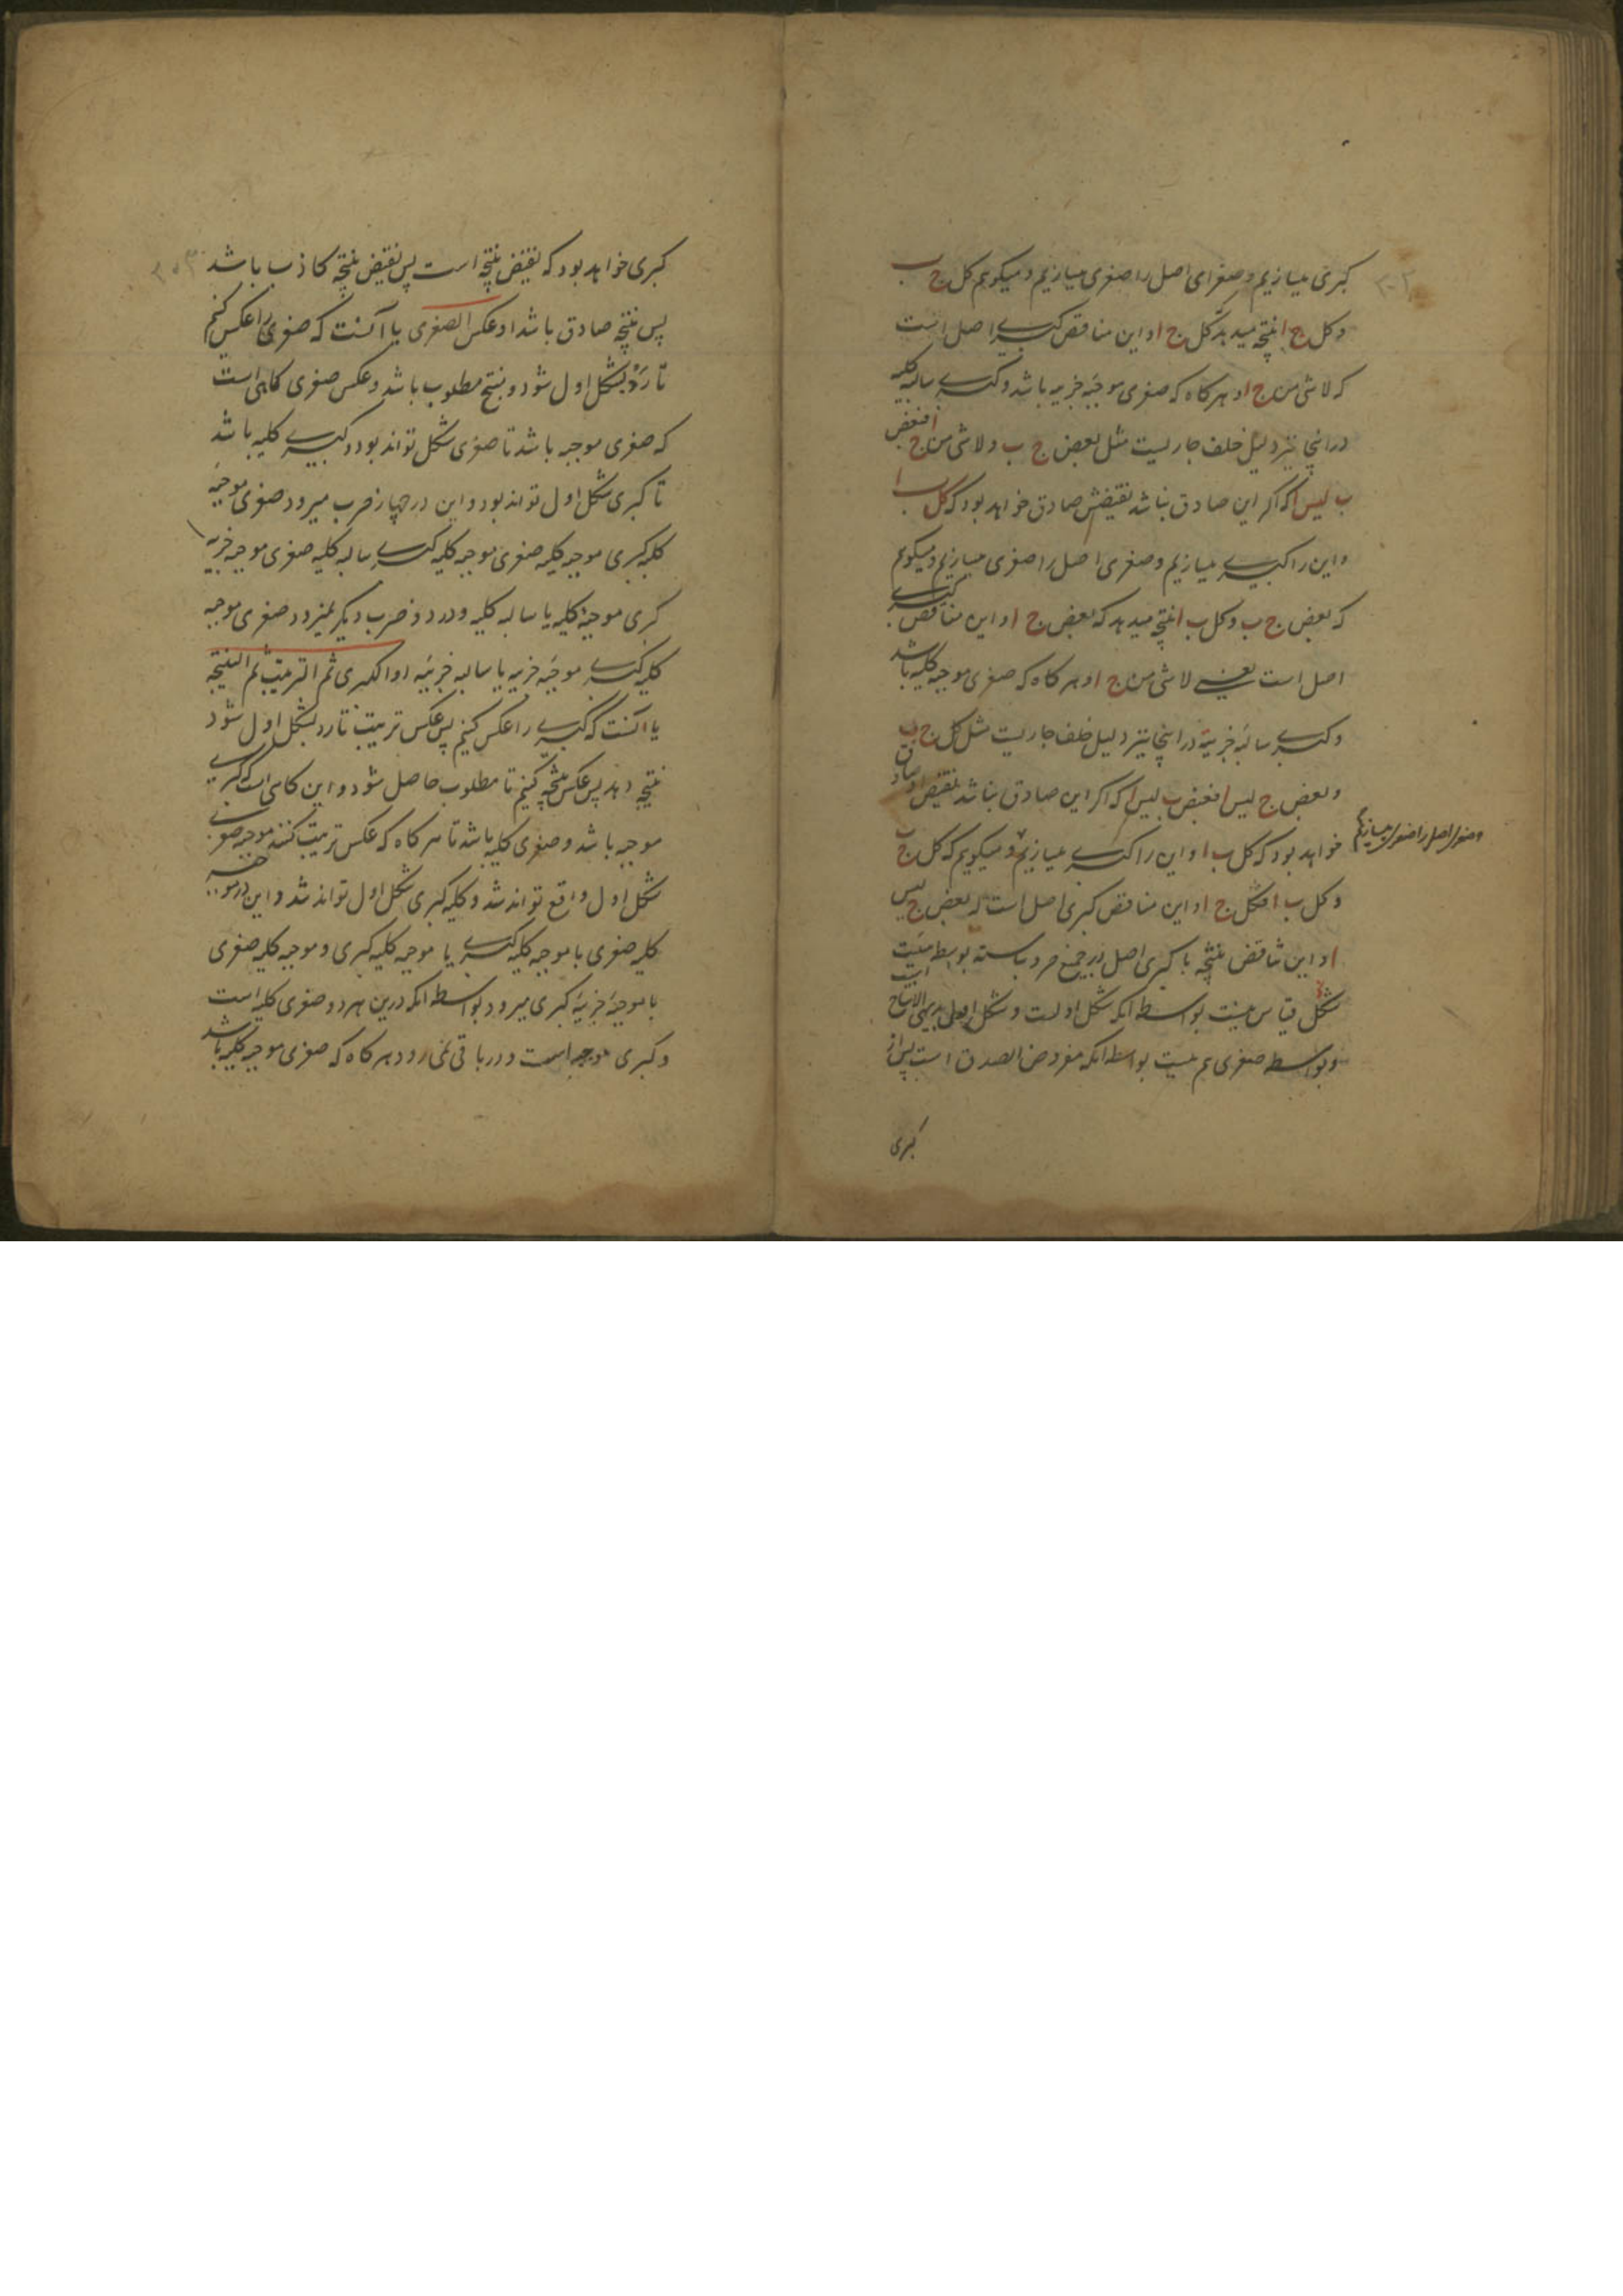 کبری میسازیم وصغرای اصل را صغری میسازیم ومیکویم کل ج ب
وکل ج ا نتیجه میدهد کل ج ا واین مناقض کبری اصل است
که لا شی من ج ا وهرکاه که صغری موجبه جزییه باشد وکبری سالبه کلیه
در اینجا نیز دلیل خلف جاریست مثل بعض ج ب ولا شی من ج ا فبعض
ب لیس ا که اکر این صادق نباشد نقیضش صادق خواهد بود که کل ب ا
واین را کبری میسازیم وصغری اصل را صغری میسازیم ومیکویم
که بعض ج ب وکل ب ا نتیجه میدهد که بعض ج ا واین مناقض کبری
اصل است یعنی لا شی من ج ا وهرکاه که صغری موجبه کلیه باشد
وکبری سالبه جزییه در اینجا نیز دلیل خلف جاریست مثل کل ج ب
وبعض ج لیس ا فبعض ب لیس ا که اکر این صادق نباشد نقیض او صادق
خواهد بود که کل ب ا واین را کبری میسازیم ومیکویم که کل ج ب
وصغرای اصل را صغری میسازیم
وکل ب ا فکل ج ا واین مناقض کبری اصل است که بعض ج لیس
ا واین تناقض نتیجه با کبری اصل در جمیع ضروب بواسطه هیئت
شکل قیاس نیست بواسطه انکه شکل اولست وشکل اول بدیهی الانتاج است
وبواسطه صغری هم نیست بواسطه انکه مفروض الصدق است پس از
کبری
کبری خواهد بود که نقیض نتیجه است پس نقیض نتیجه کاذب باشد
پس نتیجه صادق باشد او عکس الصغری یا آنست که صغری را عکس کنیم
تا رد بشکل اول شود ومنتج مطلوب باشد وعکس صغری کاهی است
که صغری موجبه باشد تا صغری شکل تواند بود وکبری کلیه باشد
تا کبری شکل اول تواند بود واین در چهار ضرب میرود صغری موجبه
کلیه کبری موجبه کلیه صغری موجبه کلیه کبری سالبه کلیه صغری موجبه جزییه
کبری موجبه کلیه یا سالبه کلیه ودر دو ضرب دیکر نمیرود صغری موجبه
کلیه کبری موجبه جزییه یا سالبه جزییه او الکبری ثم الترتیب ثم النتیجه
یا آنست که کبری را عکس کنیم پس عکس ترتیب تا رد بشکل اول شود
نتیجه دهد پس عکس نتیجه کنیم تا مطلوب حاصل شود واین کاهی است که کبری
موجبه باشد وصغری کلیه باشد تا هرکاه که عکس ترتیب کنند موجبه صغری
شکل اول واقع تواند شد وکلیه کبری شکل اول تواند شد واین در موجبه
کلیه صغری با موجبه کلیه کبری یا موجبه کلیه کبری وموجبه کلیه صغری
با موجبه جزییه کبری میرود بواسطه انکه درین هر دو صغری کلیه است
وکبری موجبه است ودر باقی نمی رود هرکاه که صغری موجبه کلیه باشد